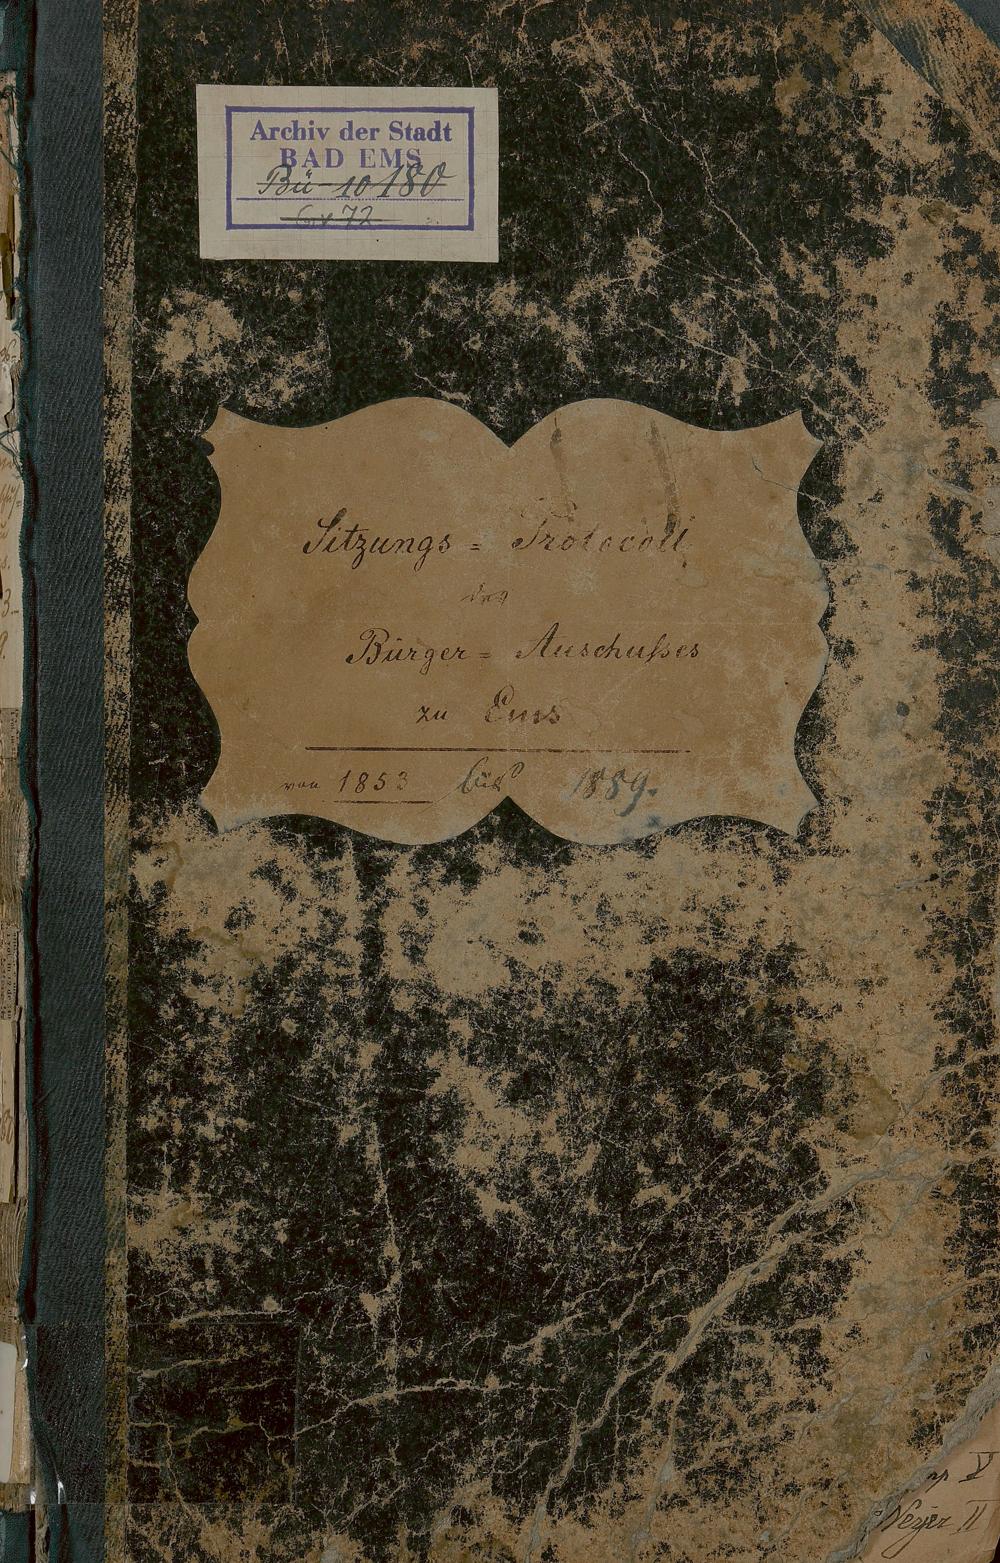 Archiv der Stadt
BAD EMS
Bü-10 180
Gx 72
Sitzungs = Protocoll
des
Bürger = Auschußes
zu Ems
von 1853 bis 1889.
V
Wezer II